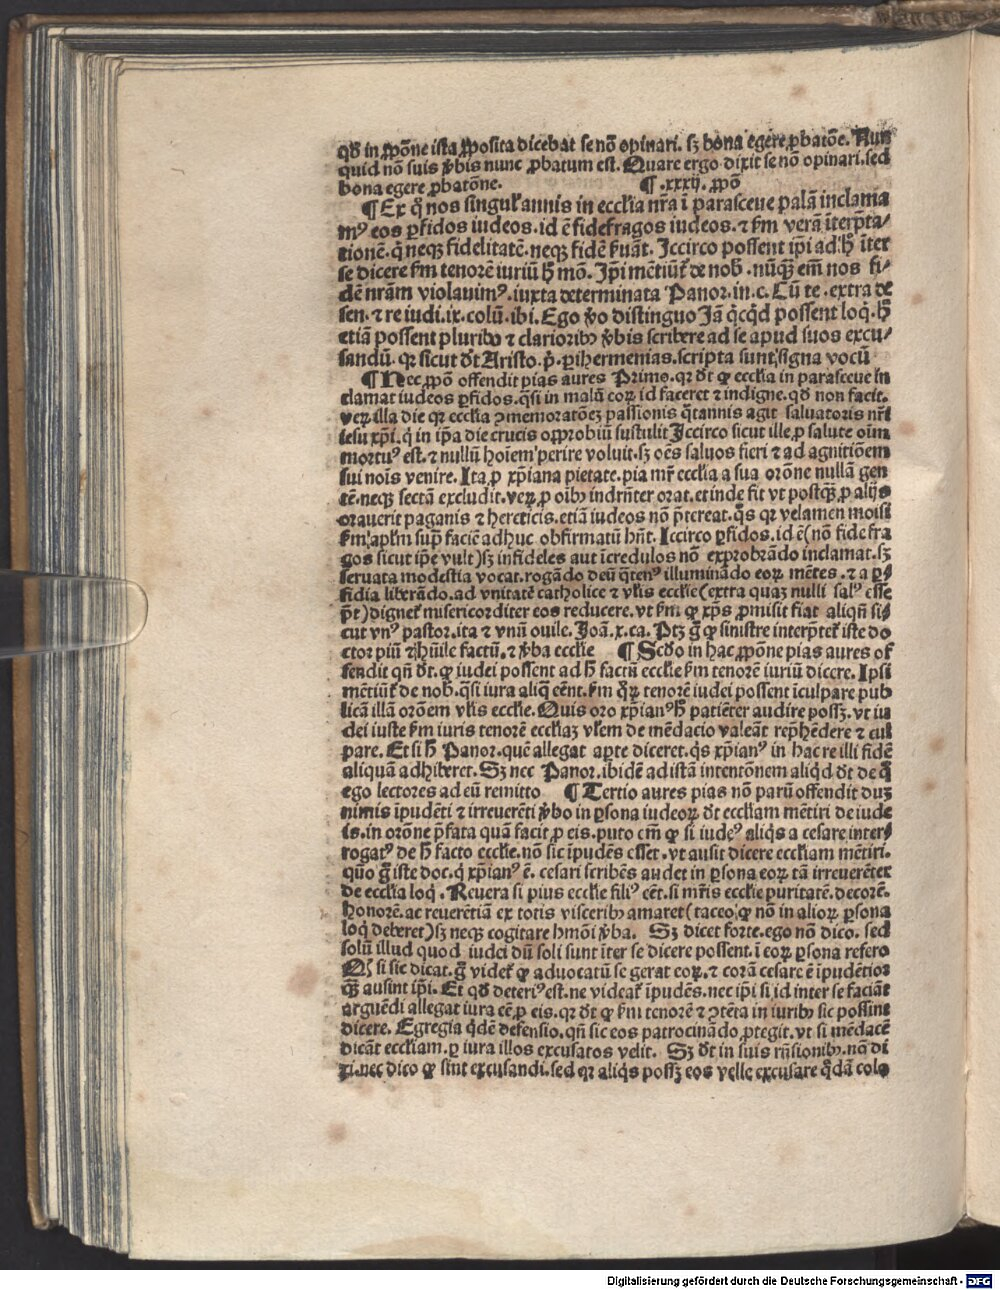 qđ in ꝓpōne ista ꝓposita dicebat se nō opinari. sꝫ bona egere ꝓbatōe. Nun
quid nō suis v̄bis nunc ꝓbatum est. Quare ergo dixit se nō opinari. sed
bona egere ꝓbatōne. ¶ .xxxij. ꝓpō
¶ Ex q̄ nos singul' annis in eccl'ia nr̄a ī parasceue palā inclama
mꝰ eos ꝑfidos iudeos. id ē fidefragos iudeos. ⁊ s'm verā īterp̄ta⸗
tionē. q̄ neqꝫ fidelitatē. neqꝫ fidē s'uāt. Iccirco possent ip̄i ad h̄ īter
se dicere s'm tenorē iuriū h̄ mō. Ip̄i mētiūt' de nob̄. nūqꝫ em̄ nos fi⸗
dē nrām violauimꝰ. iuxta determinata Panor. in. c. Cū te. extra de
sen. ⁊ re iudi. ix. colū. ibi. Ego v̄o distinguo Iā qc̄qd possent loq̄. h̄
etiā possent pluribꝰ ⁊ clarioribꝰ v̄bis scribere ad se apud suos excu⸗
sandū. qꝛ sicut dt̄ Aristo. p̄. ꝑihermenias. scripta sunt signa vocū
¶ Hec ꝓpō offendit pias aures Primo. qꝛ dt̄ ꝙ eccl'ia in parasceue in
clamat iudeos ꝑfidos. q̄si in malū coꝝ id faceret ⁊ indigne. qđ non facit.
veꝝ illa die qꝛ eccl'ia ꝯmemoratōeꝫ passionis q̄tannis agit saluatoris nr̄i
iesu xp̄i. q̄ in ip̄a die crucis opprobiū sustulit Iccirco sicut ille ꝓ salute oīm
mortuꝰ est. ⁊ nullū hoīem perire voluit. sꝫ oēs saluos fieri ⁊ ad agnitiōem
sui noīs venire. Ita ꝓ xp̄iana pietate. pia mr̄ eccl'ia a sua orōne nullā gen
tē. neqꝫ sectā excludit. veꝝ ꝓ oībꝰ indrn̄ter orat. et inde fit vt postqꝫ ꝓ alijs
orauerit paganis ⁊ hereticis. etiā iudeos nō p̄tereat. q̄s qꝛ velamen moisi
s'm ap'lm sup̄ faciē adhuc obfirmatū hn̄t. Iccirco ꝑfidos. id ē (nō fidefra
gos sicut ip̄e vult) sꝫ infideles aut īcredulos nō exprobrādo inclamat. sꝫ
seruata modestia vocat. rogādo deū q̄tenꝰ illuminādo eoꝝ mētes. ⁊ a ꝑ⸗
fidia liberādo. ad vnitatē catholice ⁊ vl'is eccl'ie (extra quaꝫ nulli salꝰ esse
pt̄) dignet' misericorditer eos reducere. vt s'm ꝙ xp̄s ꝓmisit fiat aliqn̄ si⸗
cut vnꝰ pastor. ita ⁊ vnū ouile. Joā. x. ca. Ptꝫ g̊ ꝙ sinistre interp̄tet' iste do
ctor piū ⁊ hūile factū. ⁊ v̄ba eccl'ie ¶ Scd'o in hac ꝓpōne pias aures of
fendit qn̄ dt̄. ꝙ iudei possent ad h̄ factū eccl'ie s'm tenorē iuriū dicere. Ipsi
mētiūt' de nob̄. q̄si iura aliq̄ eēnt. s'm q̄ꝝ tenorē iudei possent īculpare pub
licā illā orōem vl'is eccl'ie. Quis oro xp̄ianꝰ h̄ patiēter audire possꝫ. vt iu
dei iuste s'm iuris tenorē eccl'iaꝫ vl'em de mēdacio valeāt rep̄hēdere ⁊ cul
pare. Et si h̄ Panor. quē allegat aꝑte diceret. q̄s xp̄ianꝰ in hac re illi fidē
aliquā adhiberet. Sꝫ nec Panor. ibidē ad istā intentōnem aliqd dt̄ de q̄
ego lectores ad eū remitto ¶ Tertio aures pias nō parū offendit duꝫ
nimis īpudēti ⁊ irreuerēti v̄bo in ꝑsona iudeoꝝ dt̄ eccl'iam mētiri de iude
is. in orōne p̄fata quā facit ꝓ eis. puto em̄ ꝙ si iudeꝰ aliq̄s a cesare inter⸗
rogatꝰ de h̄ facto eccl'ie. nō sic īpudēs esset. vt ausit dicere eccl'iam mētiri.
quō g̊ iste doc. q̄ xp̄ianꝰ ē. cesari scribēs audet in ꝑsona eoꝝ tā irreuerēter
de eccl'ia loq̄. Reuera si pius eccl'ie filiꝰ eēt. si mr̄is eccl'ie puritatē. decorē.
honorē. ac reuerētiā ex totis visceribꝰ amaret (taceo ꝙ nō in alioꝝ ꝑsona
loq̄ deberet) sꝫ neqꝫ cogitare hmōi v̄ba. Sꝫ dicet forte. ego nō dico. sed
solū illud quod iudei dū soli sunt īter se dicere possent. ī eoꝝ ꝑsona refero
Qd si sic dicat. g̊ videt' ꝙ aduocatū se gerat coꝝ. ⁊ corā cesare ē īpudētior
qꝫ ausint ip̄i. Et qđ deteriꝰ est. ne videat' īpudēs. nec ip̄i si id inter se faciāt
arguēdi allegat iura eē ꝓ eis. qꝛ dt̄ ꝙ s'm tenorē ⁊ ꝯtēta in iuribꝰ sic possint
dicere. Egregia qdē defensio. qn̄ sic eos patrocinādo ꝓtegit. vt si mēdacē
dicāt eccl'iam. ꝑ iura illos excusatos velit. Sꝫ dt̄ in suis rn̄sionibꝰ. nā di
xi. nec dico ꝙ sint excusandi. sed qꝛ aliq̄s possꝫ eos velle excusare q̄dā colo
Digitalisierung gefördert durch die Deutsche Forschungsgemeinschaft - DFG